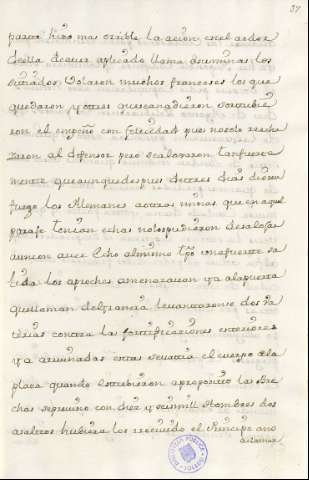 37
parte hizo mas orrible la acion en el ardor
de ella de aver aplicado llama a sus minas los
sitiados Bolaron muchos franceses los que
quedaron y otros que se añadieron sostubie
ron el empeño con felicidad pues no solo recha
zaron al defensor pero se alojaron tan fuerte
mente que aunque despues de tres dias dieron
fuego los Alemanes a otras minas que en aquel
paraje tenian echas no los pudieron desalojar
aun con aver echo al mismo tpo una fuerte sa
lida los aproches amenazavan ya a la puerta
que llaman de francia levantaronse dos ba
terias contra las fortificaciones exteriores
y arruinadas estas se vatia el cuerpo de la
plaza quando estubieron a proposito las Bre
chas se previno con diez y seis mill Hombres dos
asaltos hubiera los resistido el Principe